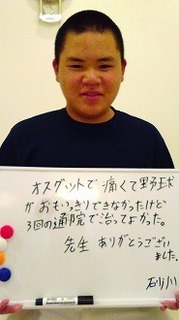 オスグットで痛くて野球
がおもいっきりできなかったけど
3回の通院で治ってよかった。
先生ありがとうござい
ました。
砂川